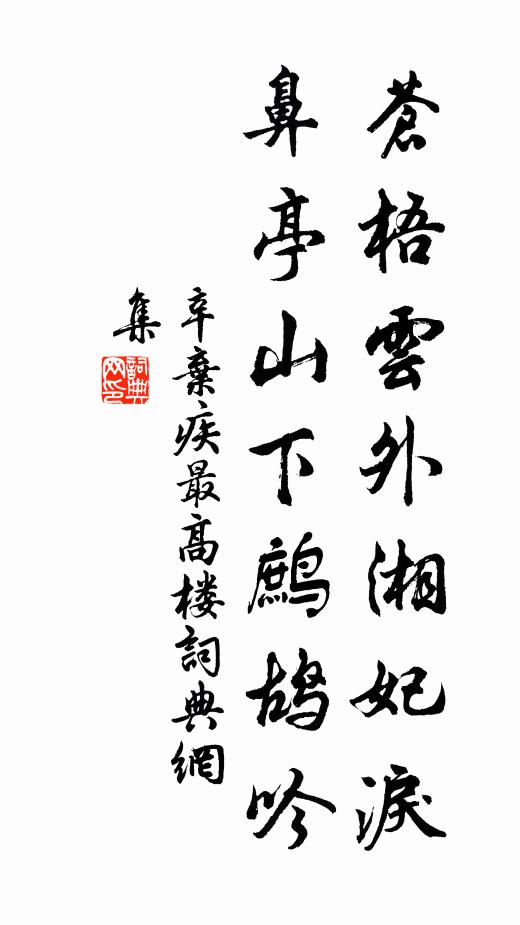 蒼梧雲外湘妃淚
鼻亭山下鷓鴣吟
辛棄疾最高楼詞典網
集
詞典
网印